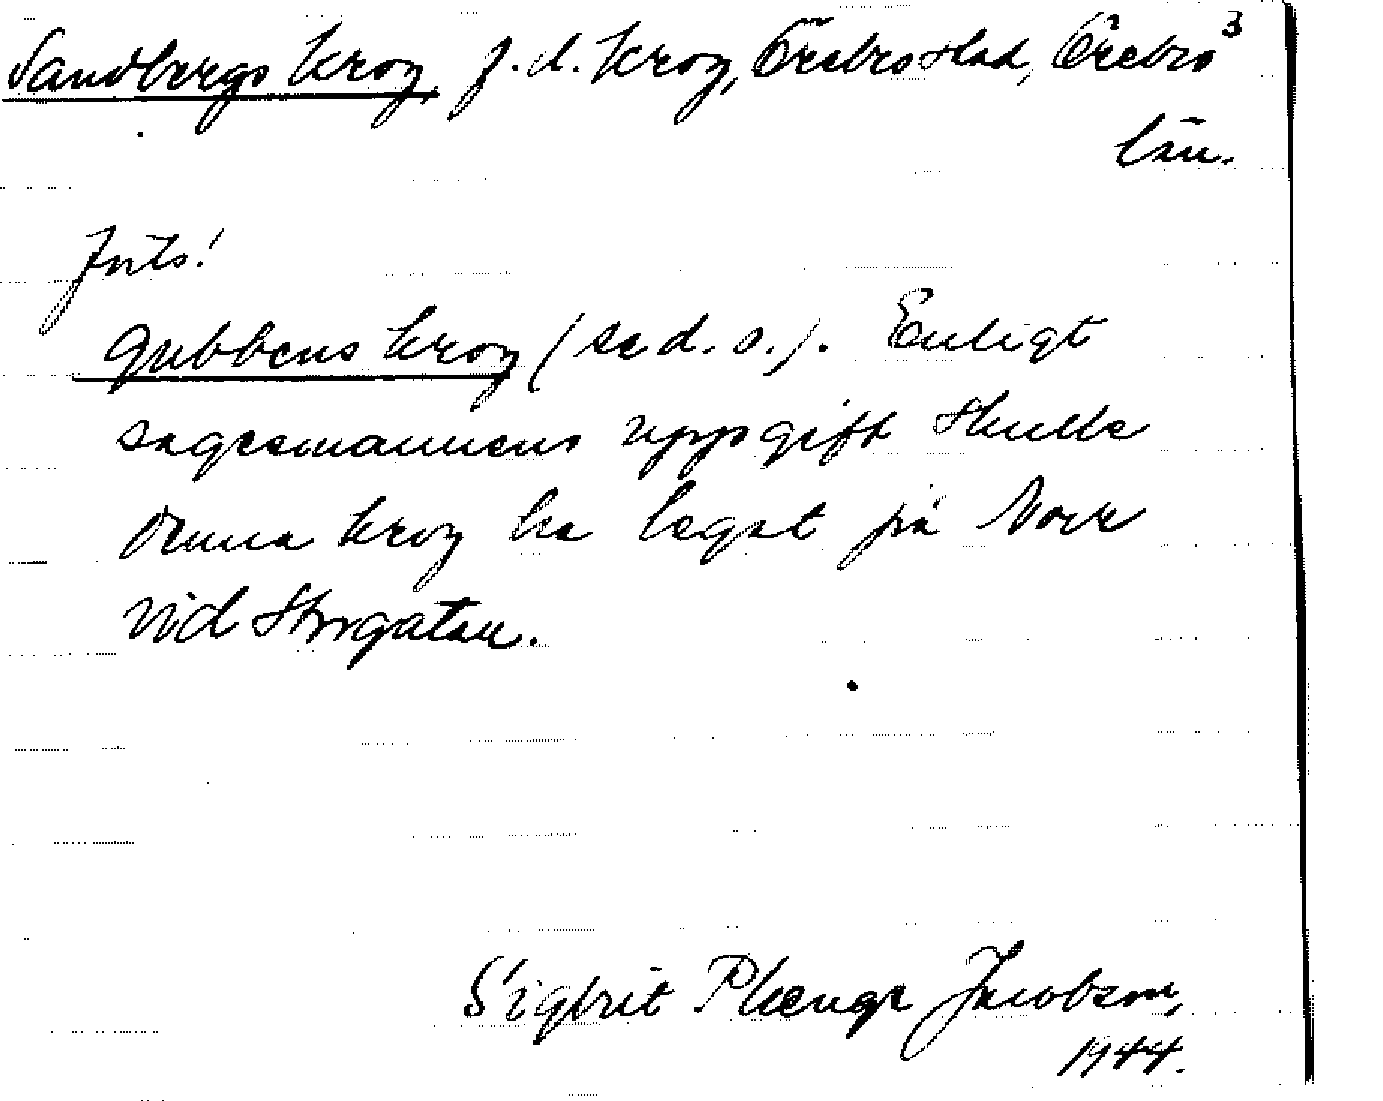 3
Sandbergs krog, f.d. krog, Örebro stad, Örebro
län.
Forts!
Gubbens krog (se d. o.). Enligt
sagesmannens uppgift skulle
denna krog ha legat på Norr
vid Storgatan.
Sigbrit Plænge Jacobson,
1944.